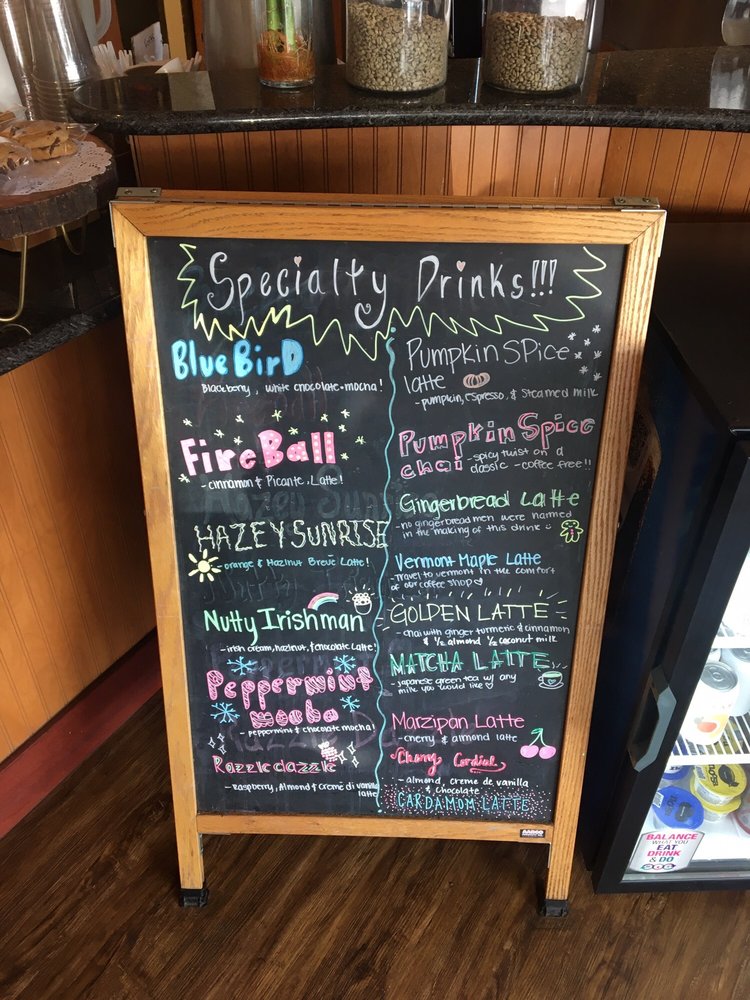 Specialty Drinks!!!
BlueBirD
Blackberry, white chocolate-mocha!
FireBall
-cinnamon & Picante Latte!
HAZEY SUNRISE
-orange & Hazlnut Brevé Latte!
Nutty Irishman
-irish cream, hazlnut, & chocolate Latte!
Peppermint
mocha
-peppermint & chocolate mocha!
Razzledazzle
-Raspberry, Almond & creme di vanilla
latte
Pumpkin SPice
latte
-pumpkin, espresso, & steamed milk
Pumpkin Spice
chai
-spicy twist on a
classic -coffee free!!
Gingerbread Latte
-no gingerbread men were named
in the making of this drink
Vermont Maple Latte
-travel to vermont in the comfort
of our coffee shop
GOLDEN LATTE
-chai with ginger turmeric & cinnamon
& 1/2 almond 1/2 coconut milk
MATCHA LATTE
-japanese green tea w/ any
milk you would like
Marzipan Latte
-cherry & almond latte
Cherry Cordial
-almond, creme de vanilla
& chocolate
CARDAMOM LATTE
AARCO
BALANCE
WHAT YOU
EAT
DRINK
& DO